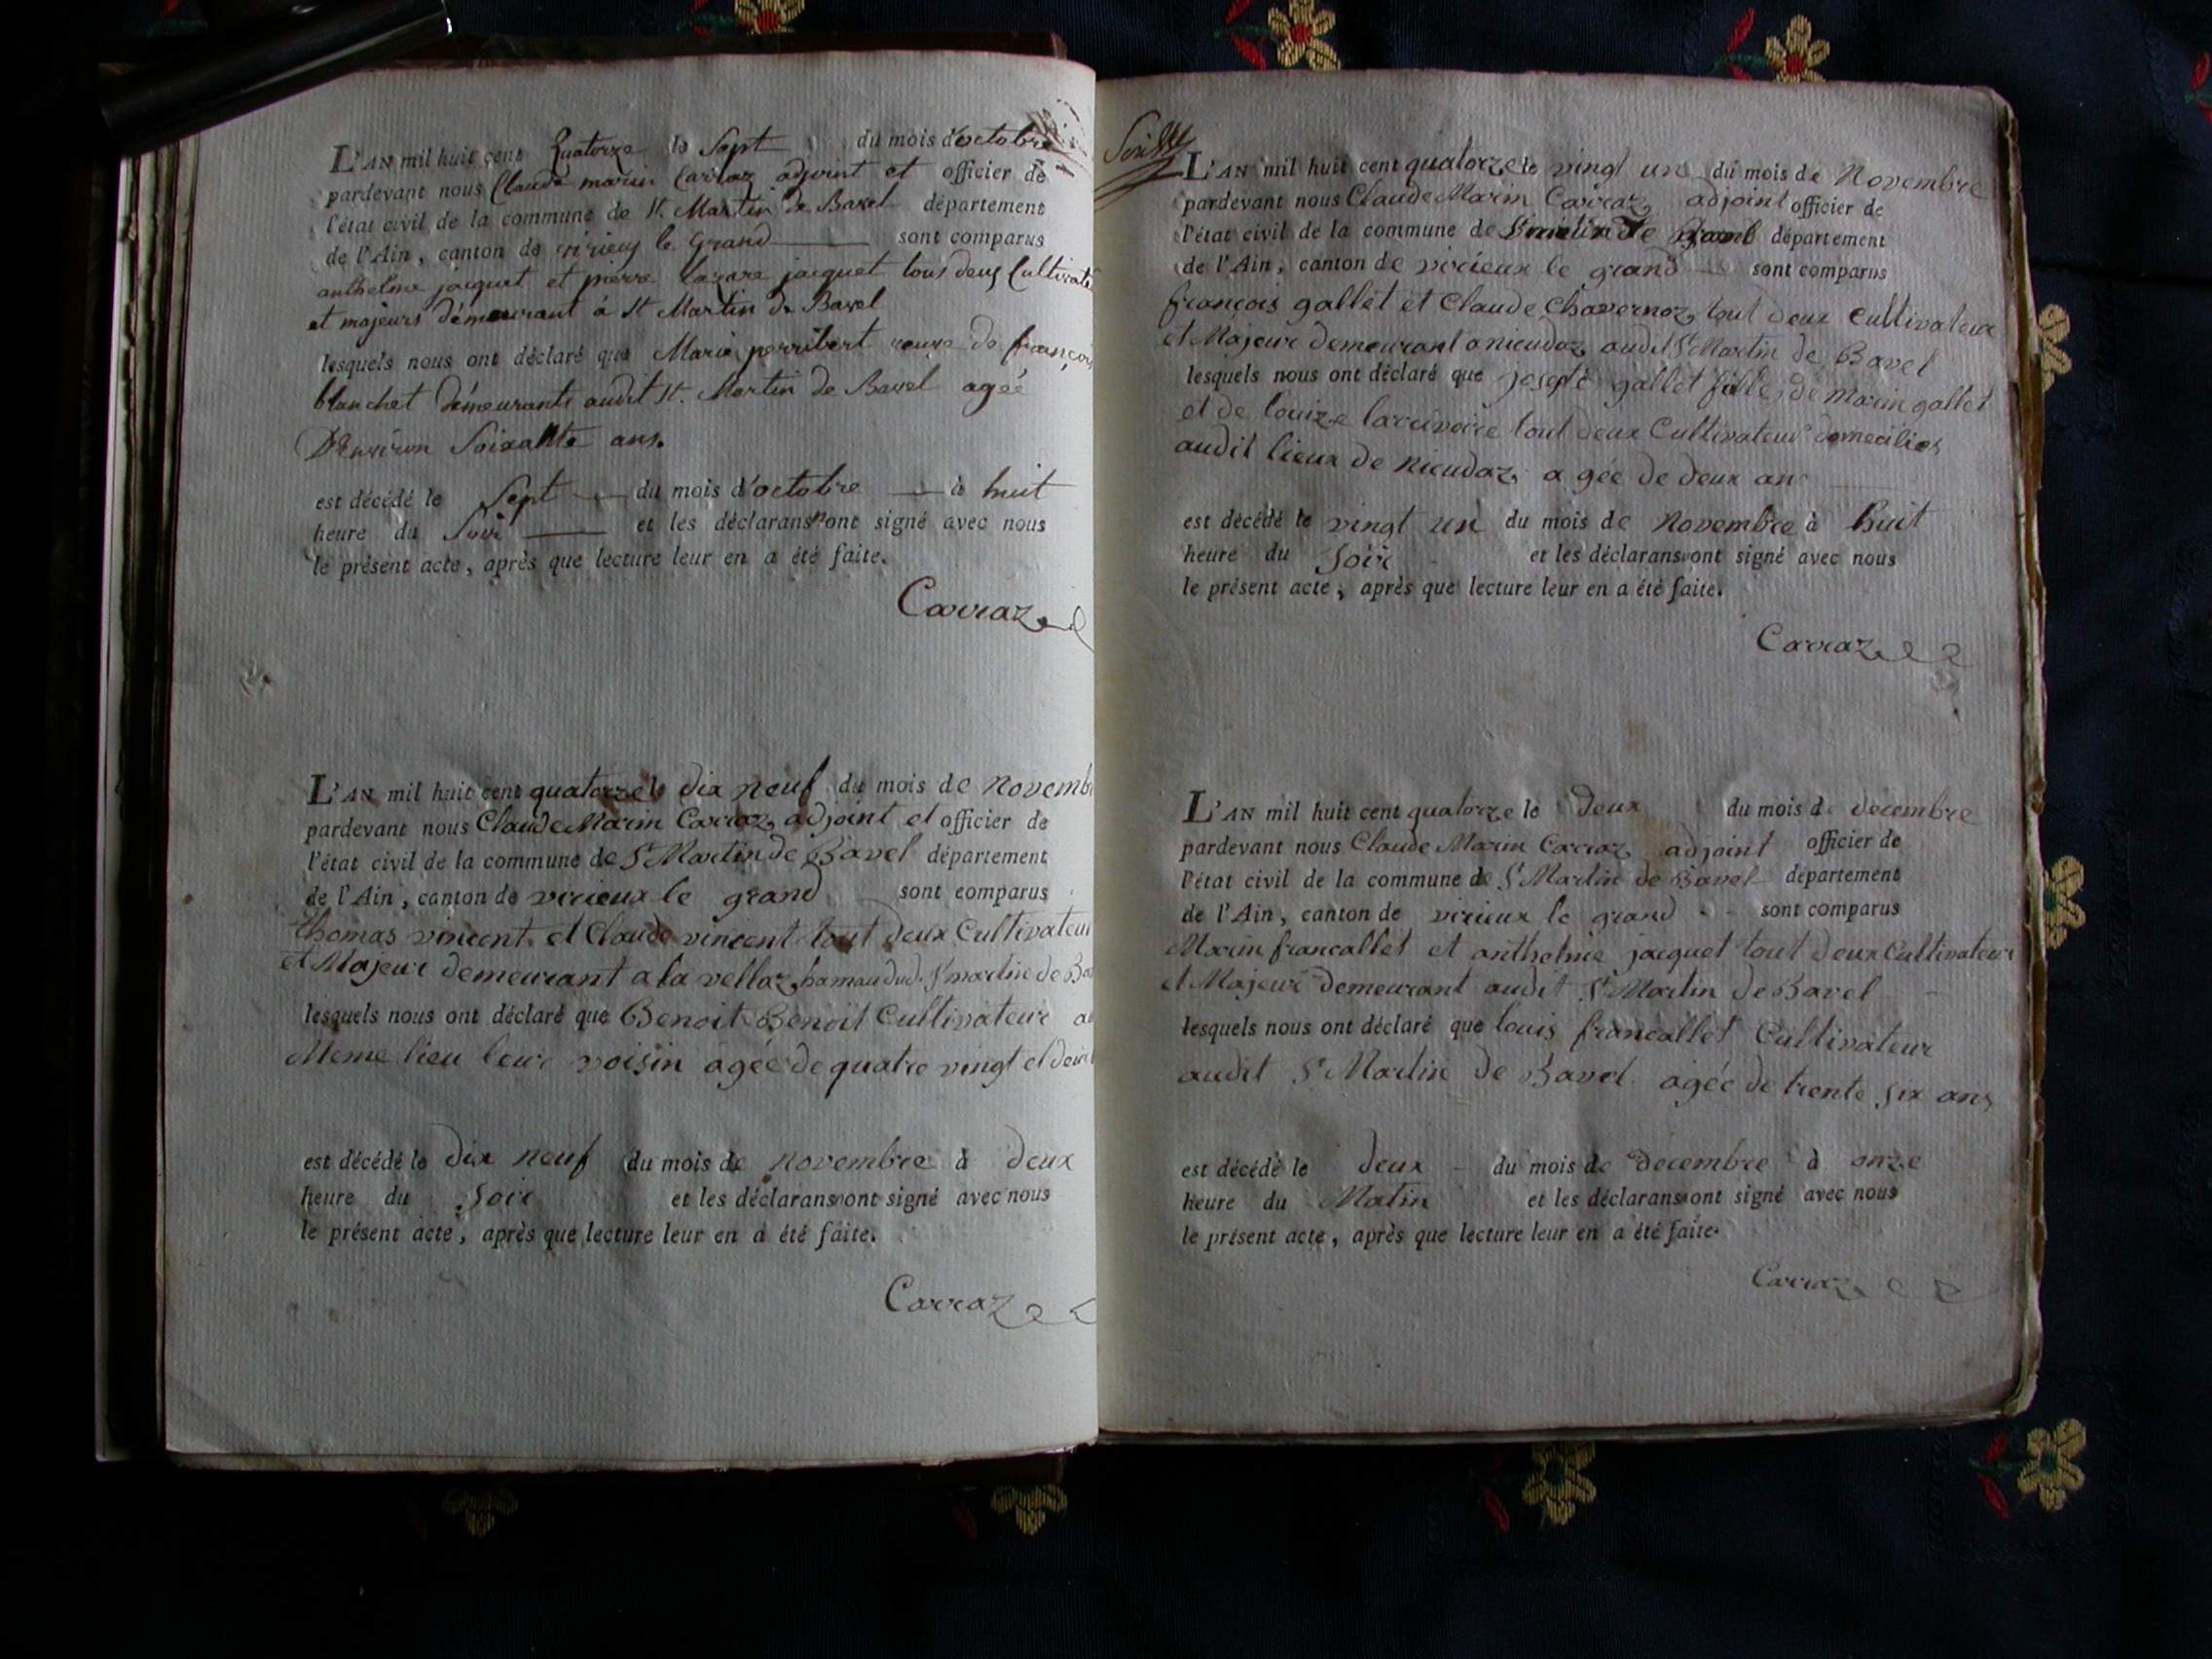 L'AN mil huit cent Quatorze le Sept du mois d'octobre
pardevant nous Claude marin Carraz adjoint et officier de
l'état civil de la commune de St. Martin de Bavel département
de l'Ain, canton de virieux le Grand sont comparus
anthelme jacquet et pierre lazare jacquet tous deux Cultivate
et majeurs démeurant à St Martin de Bavel
lesquels nous ont déclaré que Marie perribert veuve de françois
blanchet démeurante audit St. Martin de Bavel agée
D'Environ Soixante ans.
est décédé le Sept du mois d'octobre à huit
heure du Soir et les déclarans n'ont signé avec nous
le présent acte, après que lecture leur en a été faite.
Carraz
L'AN mil huit cent quatorze le dix neuf du mois de Novemb
pardevant nous Claude Marin Carraz adjoint et officier de
l'état civil de la commune de St Martin de Bavel département
de l'Ain, canton de virieux le grand sont comparus
thomas vincent et Claude vincent tout deux Cultivateur
et Majeur demeurant a la vellaz hamau dud. St martin de Ba
lesquels nous ont déclaré que Benoit Benoit Cultivateur au
Meme lieu leur voisin agée de quatre vingt et deux
est décédé le dix neuf du mois de novembre à deux
heure du Soir et les déclarans ont signé avec nous
le présent acte, après que lecture leur en a été faite.
Carraz
L'AN mil huit cent quatorze le vingt un du mois de Novembre
pardevant nous Claude Marin Carraz adjoint officier de
l'état civil de la commune de département
de l'Ain, canton de virieux le grand sont comparus
françois gallet et Claude Chavernoz tout deux Cultivateur
et Majeur demeurant a nieudaz audit St Martin de Bavel
lesquels nous ont déclaré que josepte gallet fille de Marin gallet
et de louize larrivoire tout deux Cultivateur domecilies
audit lieux de nieudaz a gée de deux an
est décédé le vingt un du mois de Novembre à huit
heure du Soir et les déclarans ont signé avec nous
le présent acte, après que lecture leur en a été faite.
Carraz
L'AN mil huit cent quatorze le deux du mois de decembre
pardevant nous Claude Marin Carraz adjoint officier de
l'état civil de la commune de St Martin de Bavel département
de l'Ain, canton de virieux le grand sont comparus
Marin francallet et anthelme jacquet tout deux Cultivateur
et Majeur demeurant audit St Martin de Bavel
lesquels nous ont déclaré que louis francallet Cultivateur
audit St Martin de Bavel agée de trente six ans
est décédé le deux du mois de decembre à onze
heure du Matin et les déclarans ont signé avec nous
le présent acte, après que lecture leur en a été faite.
Carraz